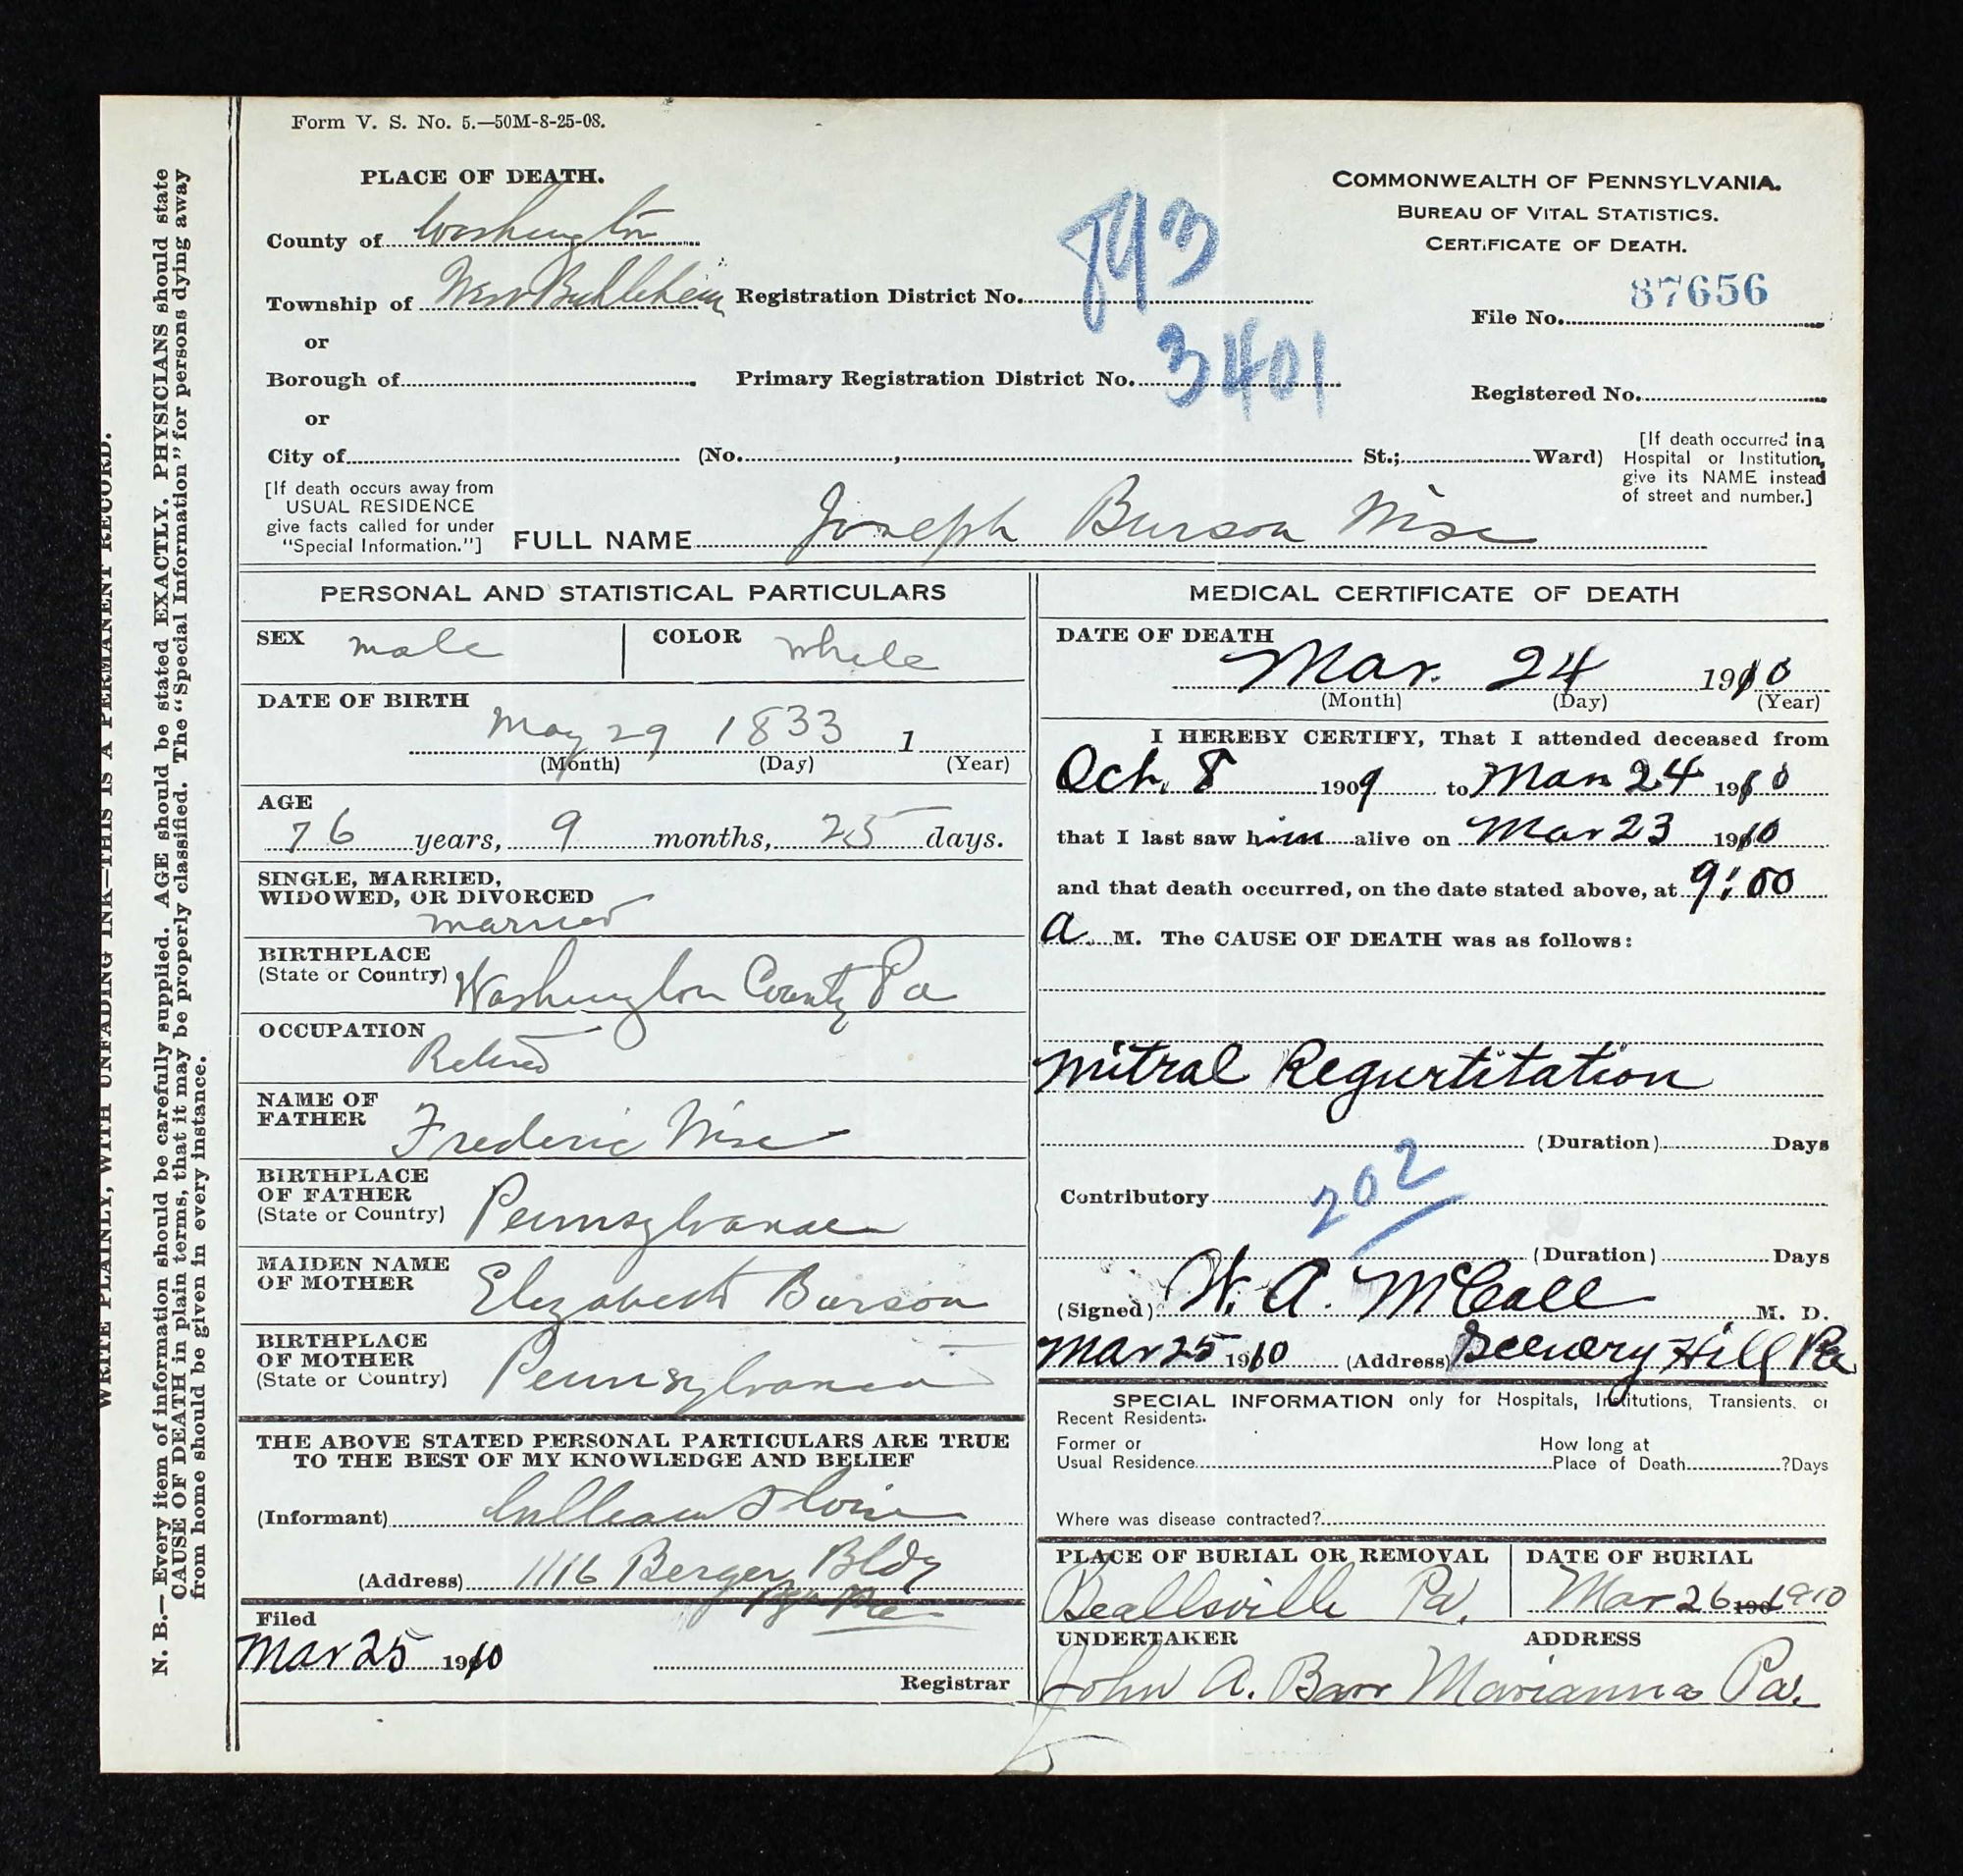 Form V. S. No. 5.—50M-8-25-08.
PLACE OF DEATH.
County of Washington
Township of West Bethlehem
or
Borough of
or
City of
(No. , St.; Ward)
Registration District No. 893
Primary Registration District No. 3401
COMMONWEALTH OF PENNSYLVANIA.
BUREAU OF VITAL STATISTICS.
CERTIFICATE OF DEATH.
87656
File No.
Registered No.
[If death occurred in a
Hospital or Institution,
give its NAME instead
of street and number.]
[If death occurs away from
USUAL RESIDENCE
give facts called for under
"Special Information."]
FULL NAME Joseph Burson Wise
PERSONAL AND STATISTICAL PARTICULARS
SEX male COLOR white
DATE OF BIRTH
May 29 1833 1
(Month) (Day) (Year)
AGE
76 years, 9 months, 25 days.
SINGLE, MARRIED,
WIDOWED, OR DIVORCED
married
BIRTHPLACE
(State or Country) Washington County Pa
OCCUPATION
Retired
NAME OF
FATHER Frederic Wise
BIRTHPLACE
OF FATHER
(State or Country) Pennsylvania
MAIDEN NAME
OF MOTHER Elizabeth Burson
BIRTHPLACE
OF MOTHER
(State or Country) Pennsylvania
THE ABOVE STATED PERSONAL PARTICULARS ARE TRUE
TO THE BEST OF MY KNOWLEDGE AND BELIEF
(Informant)
(Address) 1116 Berger Bldg
Filed
Mar 25 1910
Registrar
MEDICAL CERTIFICATE OF DEATH
DATE OF DEATH
Mar. 24 1910
(Month) (Day) (Year)
I HEREBY CERTIFY, That I attended deceased from
Oct. 8 1909 to Mar 24 1910
that I last saw him alive on Mar 23 1910
and that death occurred, on the date stated above, at 9:00
a M. The CAUSE OF DEATH was as follows:
Mitral Regurtitation
(Duration) Days
Contributory 202
(Duration) Days
(Signed) W. A. McCall M. D.
Mar 25 1910 (Address) Scenery Hill Pa
SPECIAL INFORMATION only for Hospitals, Institutions, Transients, or
Recent Residents.
Former or
Usual Residence
How long at
Place of Death ?Days
Where was disease contracted?
PLACE OF BURIAL OR REMOVAL
Beallsville Pa.
DATE OF BURIAL
Mar 26 190 1910
UNDERTAKER ADDRESS
John A. Barr Marianna Pa.
WRITE PLAINLY, WITH UNFADING INK—THIS IS A PERMANENT RECORD.
N. B.—Every item of information should be carefully supplied. AGE should be stated EXACTLY. PHYSICIANS should state
CAUSE OF DEATH in plain terms, that it may be properly classified. The "Special Information" for persons dying away
from home should be given in every instance.